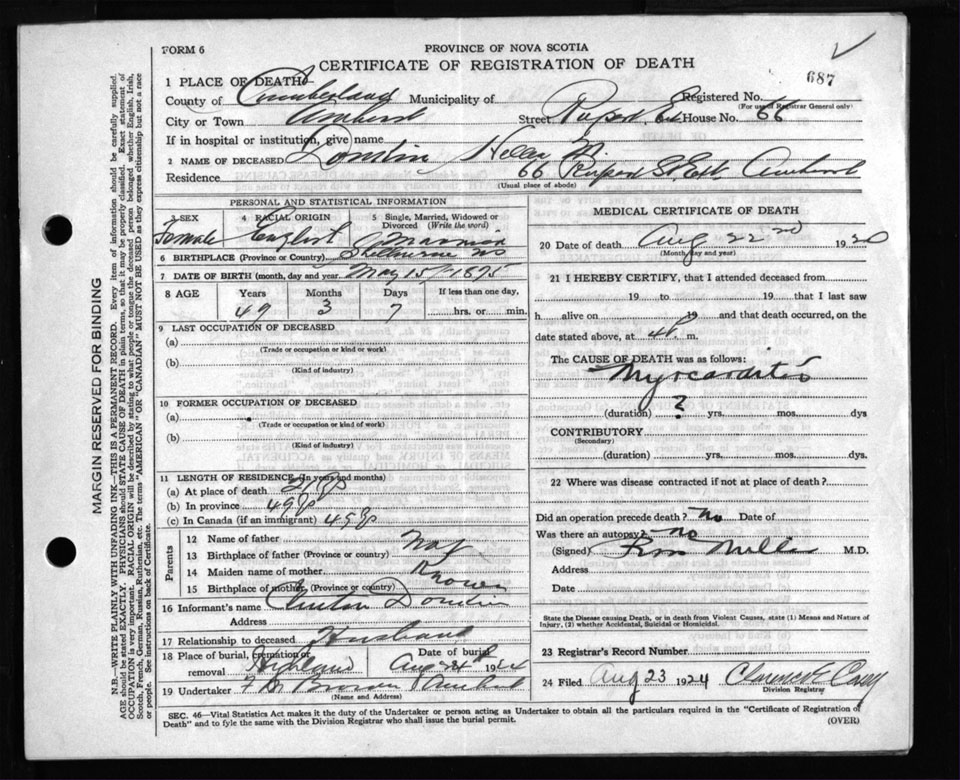 FORM 6
PROVINCE OF NOVA SCOTIA
CERTIFICATE OF REGISTRATION OF DEATH
687
1 PLACE OF DEATH
County of Cumberland Municipality of Registered No.
(For use of Registrar General only)
City or Town Amherst Street Rupert Ext. House No. 66
If in hospital or institution, give name
2 NAME OF DECEASED Hellen M.
Residence 66 Rupert St. Ext. Amherst
(Usual place of abode)
PERSONAL AND STATISTICAL INFORMATION
3 SEX 4 RACIAL ORIGIN 5 Single, Married, Widowed or Divorced (Write the word)
Female English Married
6 BIRTHPLACE (Province or Country) Shelburne NS
7 DATE OF BIRTH (month, day and year) May 15/1875
8 AGE Years Months Days If less than one day,
49 3 7 ......hrs. or ...... min.
9 LAST OCCUPATION OF DECEASED
(a)
(Trade or occupation or kind or work)
(b)
(Kind of industry)
10 FORMER OCCUPATION OF DECEASED
(a)
(Trade or occupation or kind of work)
(b)
(Kind of industry)
11 LENGTH OF RESIDENCE (In years and months)
(a) At place of death
(b) In province 49
(c) In Canada (if an immigrant)
Parents
12 Name of father Not
13 Birthplace of father (Province or country)
14 Maiden name of mother Known
15 Birthplace of mother (Province or country)
16 Informant's name
Address
17 Relationship to deceased Husband
18 Place of burial, cremation or removal Highland Date of burial Aug 24 1924
19 Undertaker Amherst
(Name and Address)
MEDICAL CERTIFICATE OF DEATH
20 Date of death Aug 22nd 19
(Month, day and year)
21 I HEREBY CERTIFY, that I attended deceased from
19 to 19 that I last saw
h alive on 19 and that death occurred, on
date stated above, at 4 P. m.
The CAUSE OF DEATH was as follows:
Myocarditis
(duration) ? yrs. mos. dys
CONTRIBUTORY
(Secondary)
(duration) yrs. mos. dys.
22 Where was disease contracted if not at place of death?
Did an operation precede death? no Date of
Was there an autopsy? no
(Signed) M.D.
Address
Date
State the Disease causing Death, or in death from Violent Causes, state (1) Means and Nature of
Injury, (2) whether Accidental, Suicidal or Homicidal.
23 Registrar's Record Number
24 Filed Aug 23 1924 Clarence E Casey
Division Registrar
SEC. 46—Vital Statistics Act makes it the duty of the Undertaker or person acting as Undertaker to obtain all the particulars required in the "Certificate of Registration of
Death" and to fyle the same with the Division Registrar who shall issue the burial permit. (OVER)
MARGIN RESERVED FOR BINDING
N.B.—WRITE PLAINLY WITH UNFADING INK—THIS IS A PERMANENT RECORD. Every item of information should be carefully supplied.
AGE should be stated EXACTLY. PHYSICIANS should STATE CAUSE OF DEATH in plain terms, so that it may be properly classified. Exact statement of
OCCUPATION is very important. RACIAL ORIGIN will be described by stating to what people or tongue the deceased person belonged whether English, Irish,
Scotch, French, German, Russian, Ruthenian, etc. The terms "AMERICAN" OR "CANADIAN" MUST NOT BE USED as they express citizenship but not a race
or people. See instructions on back of Certificate.